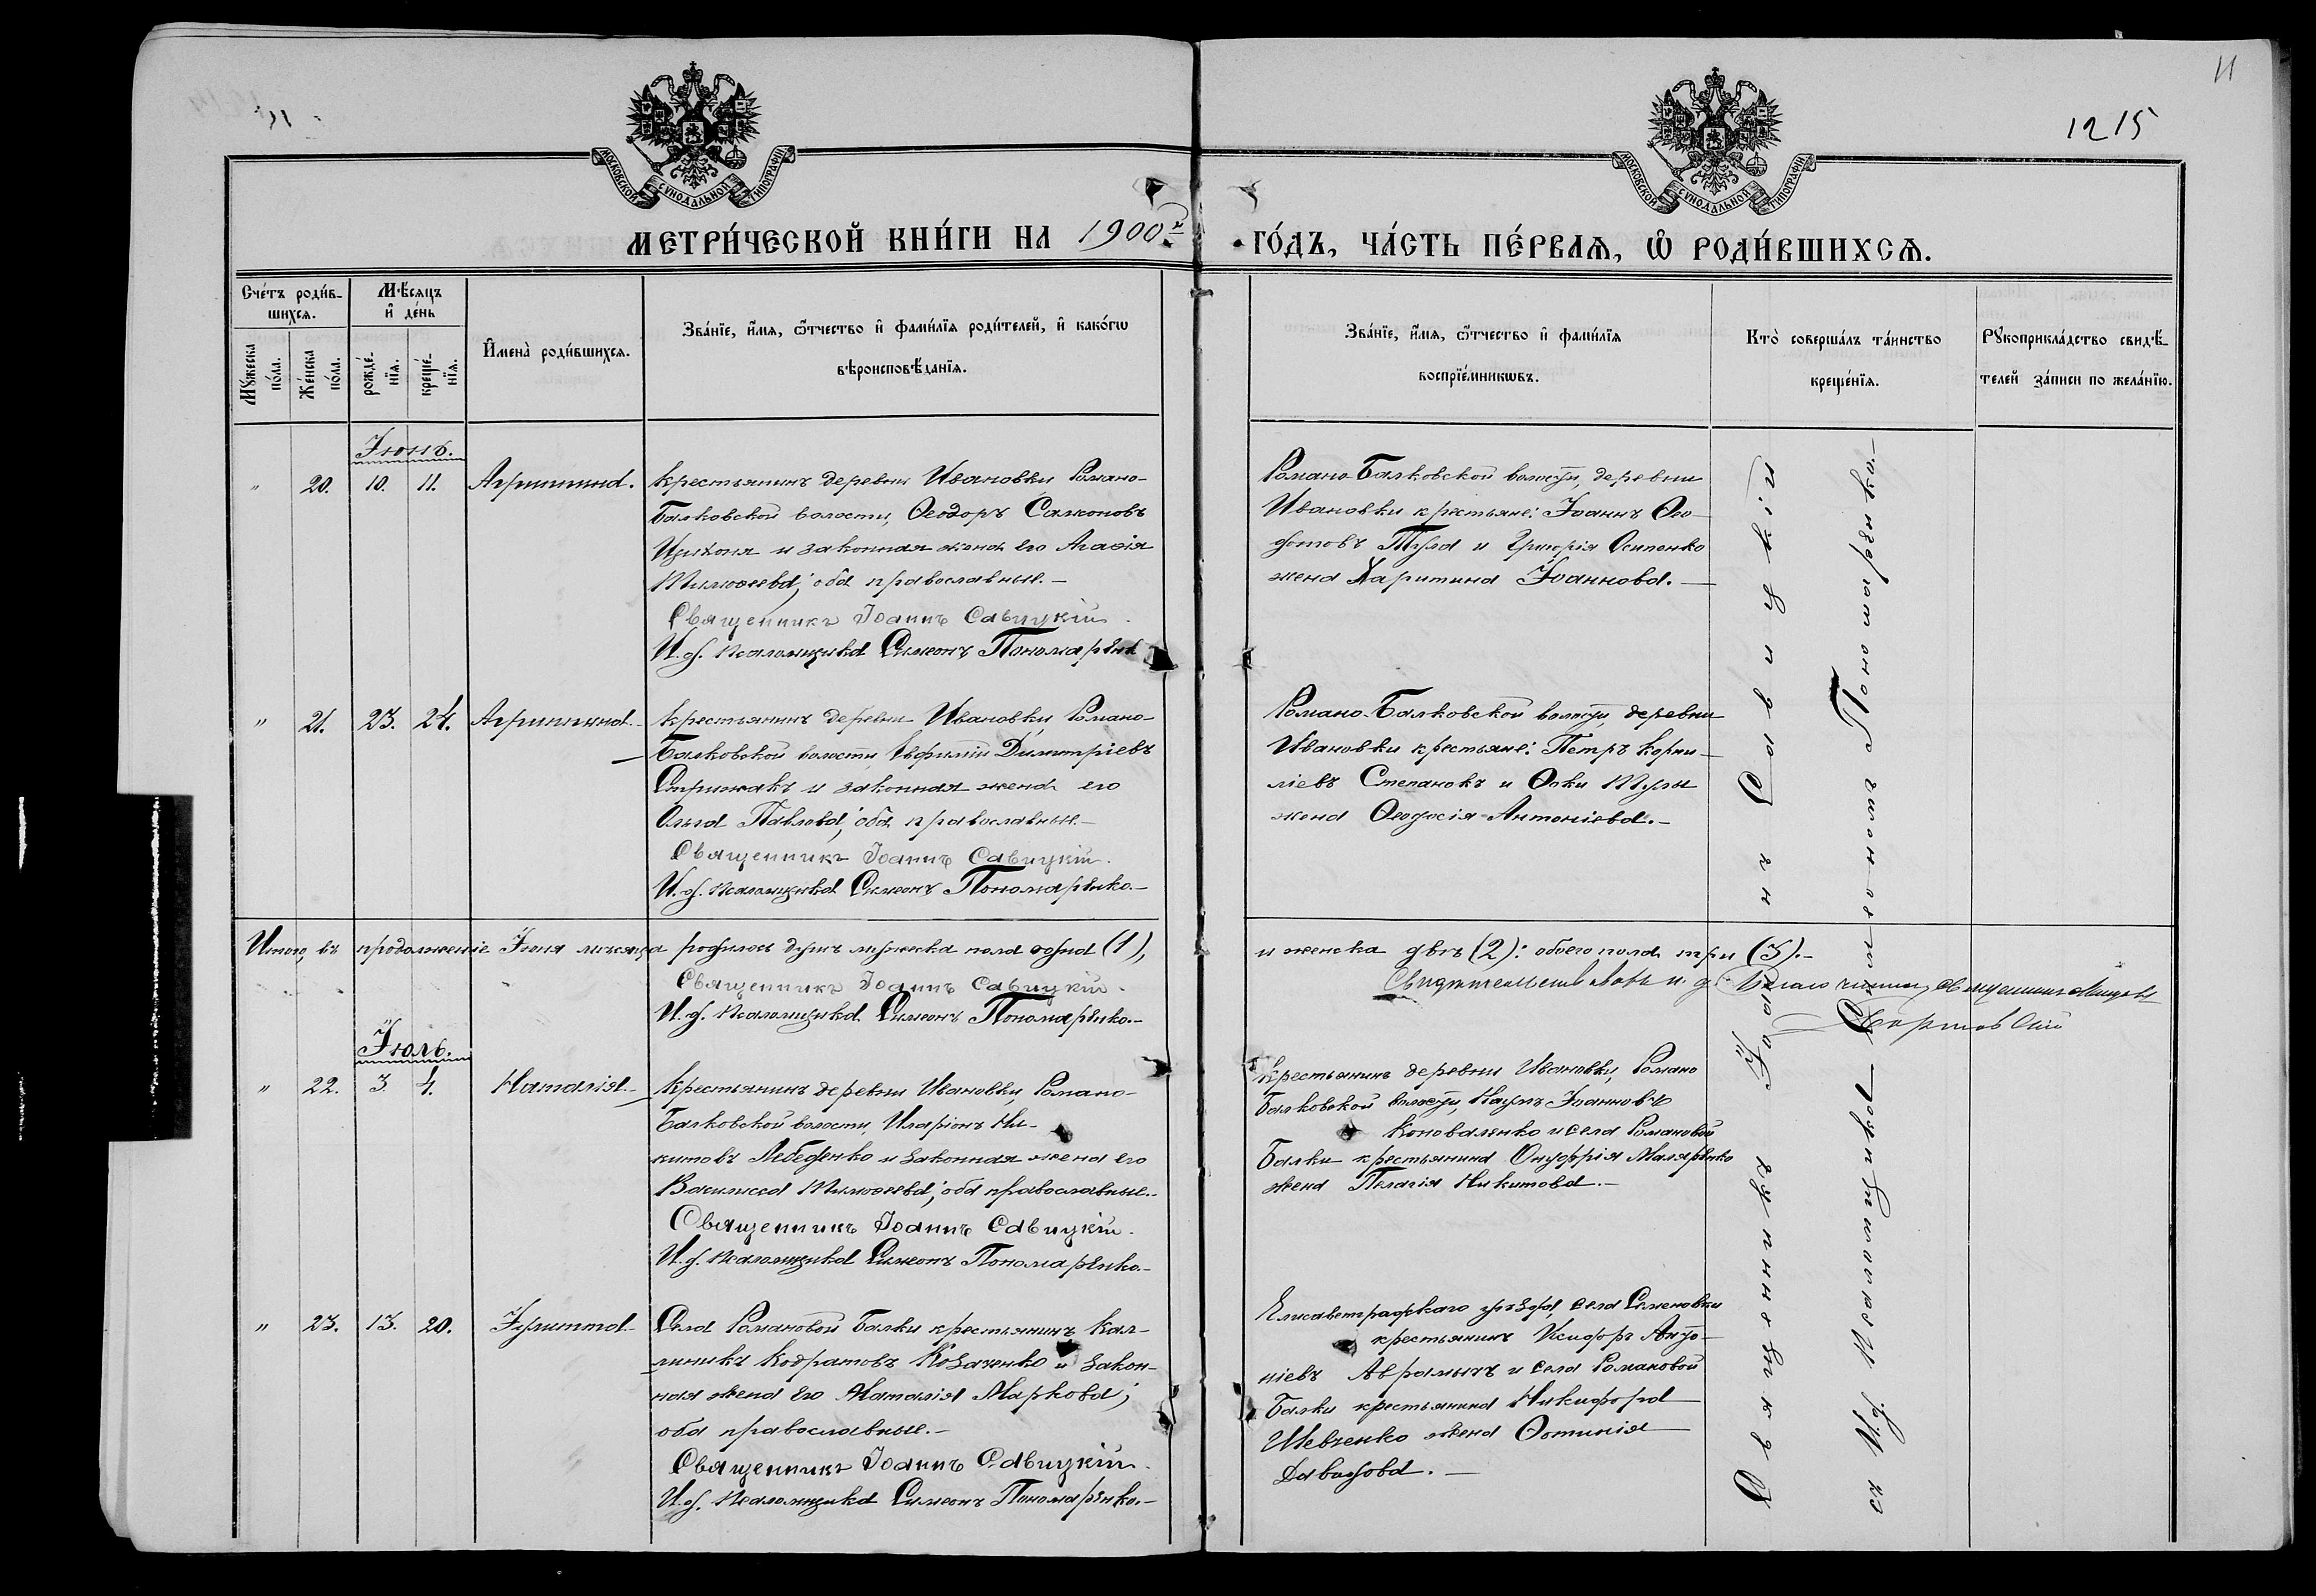 11
1215
МОСКОВСКОЙ СѴНОДАЛЬНОЙ ТИПОГРАФІИ
МОСКОВСКОЙ СѴНОДАЛЬНОЙ ТИПОГРАФІИ
МЕТРИ́ЧЕСКОЙ КНИ́ГИ НА 1900й ГО́ДЪ, ЧА́СТЬ ПЕ́РВАЯ, Ѡ РОДИ́ВШИХСЯ.
Сче́тъ роди́в-
шихся.
Мꙋжеска по́ла.
Же́нска по́ла.
Мѣ́сяцъ
и де́нь
рожде́-
нїя.
креще́-
нїя.
Имена̀ роди́вшихся.
Зва́нїе, и́мя, ѿтчество и фами́лїя роди́телей, и како́гѡ
вѣроисповѣ́данїя.
Зва́нїе, и́мя, ѿтчество и фами́лїя
воспрїе́мникѡвъ.
Кто̀ соверша́лъ та́инство
креще́нїя.
Рꙋкоприкла́дство свидѣ́-
телей за́писи по жела́нїю.
Іюнь.
" 20. 10. 11. Агриппина.
Крестьянинъ деревни Ивановки Романо-
Балковской волости, Ѳеодоръ Самсоновъ
и законная жена его Агаѳія
Тимоѳеева; оба православные.—
Священникъ Іоаннъ Савицкій.
И. д. псаломщика Симеонъ Пономаренко
Романо-Балковской волости, деревни
Ивановки крестьяне: Іоаннъ Ѳео-
дотовъ Тула и Григорія Осипенко
жена Харитина Іоаннова.—
" 21. 23. 24. Агриппина.
Крестьянинъ деревни Ивановки, Романо-
Балковской волости Евфимій Димитріевъ
Стрижакъ и законная жена его
Ольга Павлова; оба православные.—
Священникъ Іоаннъ Савицкій.
И. д. псаломщика Симеонъ Пономаренко.—
Романо-Балковской волости, деревни
Ивановки крестьяне: Петръ Корни-
ліевъ Степанокъ и Ѳоки Тулы
жена Ѳеодосія Антоніева.—
Итого, въ продолженіе Іюня мѣсяца родилось душъ мужеска пола одна (1),
и женска двѣ (2): обоего пола три (3).—
Священникъ Іоаннъ Савицкій.
И. д. псаломщика Симеонъ Пономаренко.—
Свидѣтельствовалъ и. д. Благочиннаго, священникъ
Іюль.
" 22. 3. 4. Наталія.
Крестьянинъ деревни Ивановки, Романо-
Балковской волости, Иларіонъ Ни-
китовъ Лебеденко и законная жена его
Василисса Тимоѳеева; оба православные.-
Священникъ Іоаннъ Савицкій.
И. д. псаломщика Симеонъ Пономаренко.—
Крестьянинъ деревни Ивановки, Романо
Балковской волости, Наумъ Іоанновъ
Коноваленко и села Романовой
Балки крестьянина Онуфрія Маляренко
жена Пелагія Никитова.—
" 23. 13. 20. Іулитта.
Села Романовой Балки крестьянинъ Кал-
линикъ Кодратовъ Козаченко и закон-
ная жена его Наталія Маркова;
оба православные.—
Священникъ Іоаннъ Савицкій.
И. д. псаломщика Симеонъ Пономаренко.—
Елисаветградскаго уѣзда, села Семеновки
крестьянинъ Исидоръ Анто-
ніевъ и села Романовой
Балки крестьянина Никифора
Шевченко жена Ѳотинія
Давидова.—
Священникъ Іоаннъ Савицкій
съ И. д. псаломщика Симеономъ Пономаренко.—